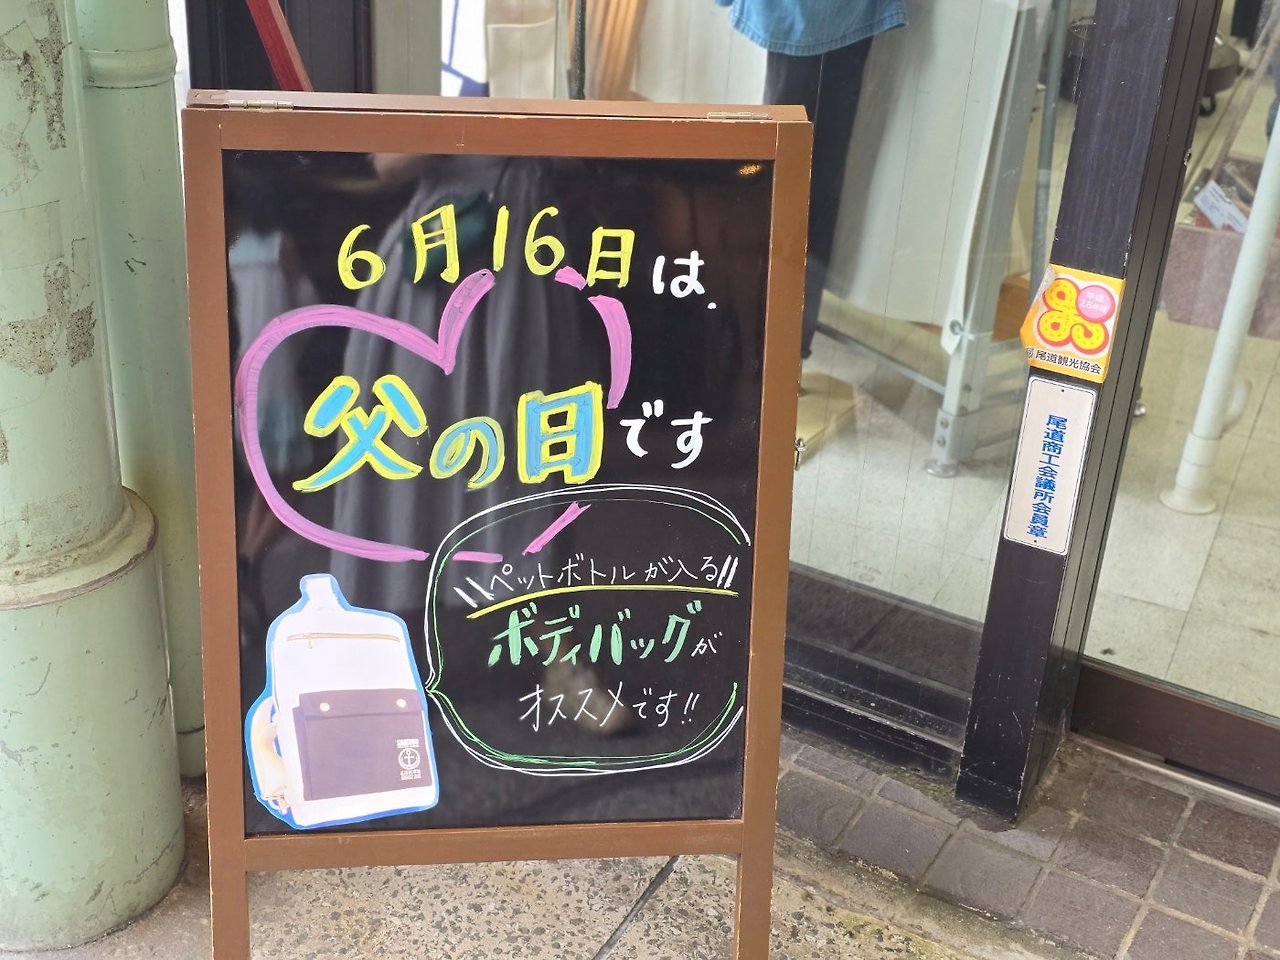 6月16日は、
父の日です
ペットボトルが入る
ボディバッグが
オススメです!!
平成
28年度
尾道観光協会
尾道商工会議所会員章